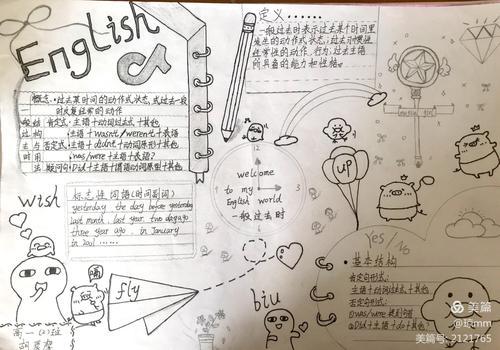 English
概念：过去某时间的动作或状态，或过去一段
时反复经常的动作
肯定式：主语＋动词过去式＋其他
结构
主语＋wasn't/weren't＋表语
否定式：主语＋didn't＋动词原形＋其他
was/were＋主语＋表语？
疑问句：Did＋主语＋谓语动词原形＋其他
定义……
一般过去时表示过去某个时间里
发生的动作或状态；过去习惯性
经常性的动作、行为；过去主语
所具备的能力和性格。
12
3
6
9
welcome
to my
English world
一般过去时
up
wish
标志性词语（时间副词）
yesterday the day before yesterday
last month, last year, two days ago
three year ago, in January
in 2001 ……
fly
biu
Yes/No
基本结构
肯定句形式：
主语＋动词过去式＋其他
否定句形式：
①was/were
②Did＋主语＋do＋其他？
高一（2）班
美篇
美篇号：2121765